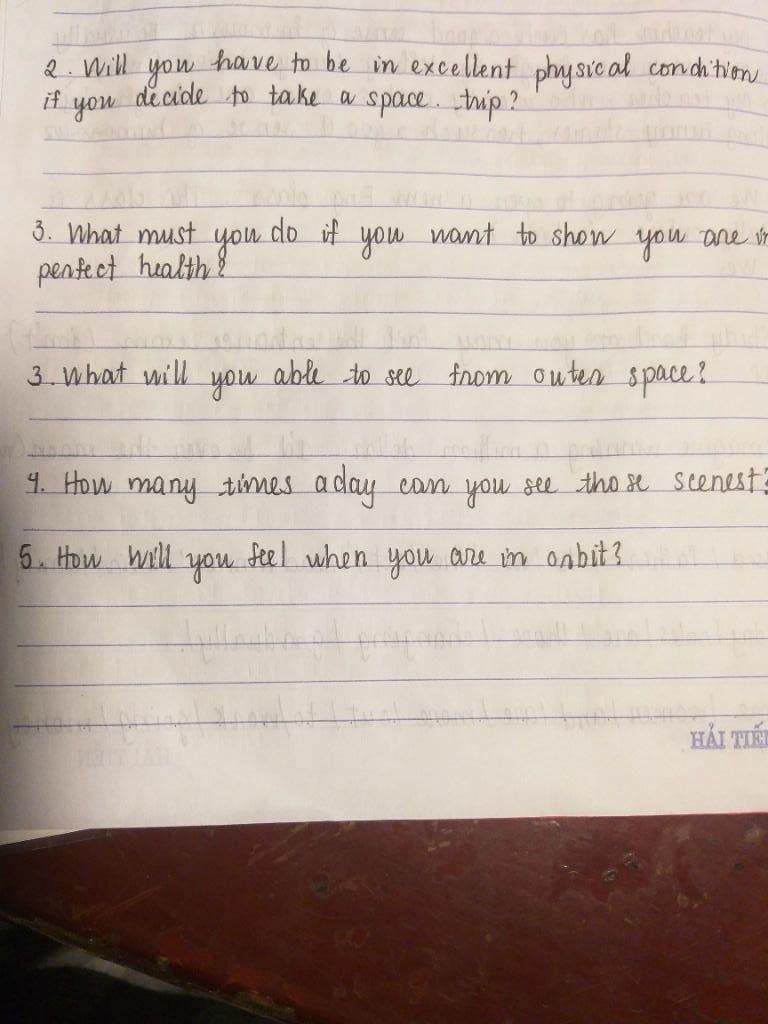 2. Will you have to be in excellent physical condition
if you decide to take a space. trip?
3. What must you do if you want to show you are in
perfect health?
3. What will you able to see from outer space?
4. How many times a day can you see those scenest?
5. How will you feel when you are in orbit?
HẢI TIẾN